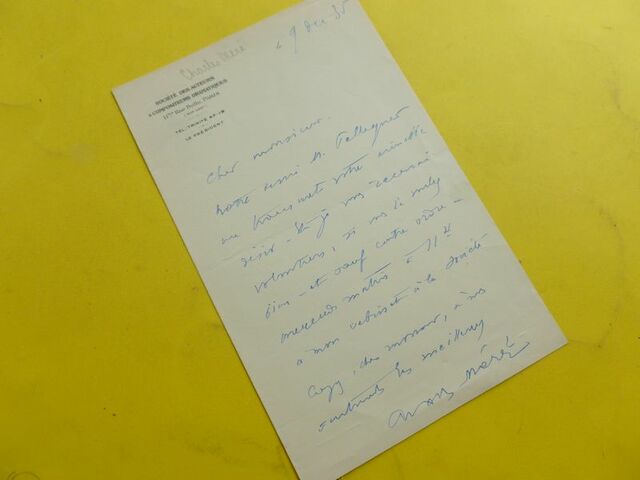 Charles Méré
9 Dec 35
SOCIÉTÉ DES AUTEURS
& COMPOSITEURS DRAMATIQUES
11bis Rue Ballu, PARIS
TEL. TRINITÉ
LE PRÉSIDENT
Cher monsieur,
notre ami
me transmet votre aimable
désir - Et je vous recevrai
volontiers, si vous le voulez
bien - et sauf contre ordre -
mercredi matin à 11 h
à mon cabinet à la Société
Croyez, cher monsieur, à mes
sentiments les meilleurs
Charles Méré